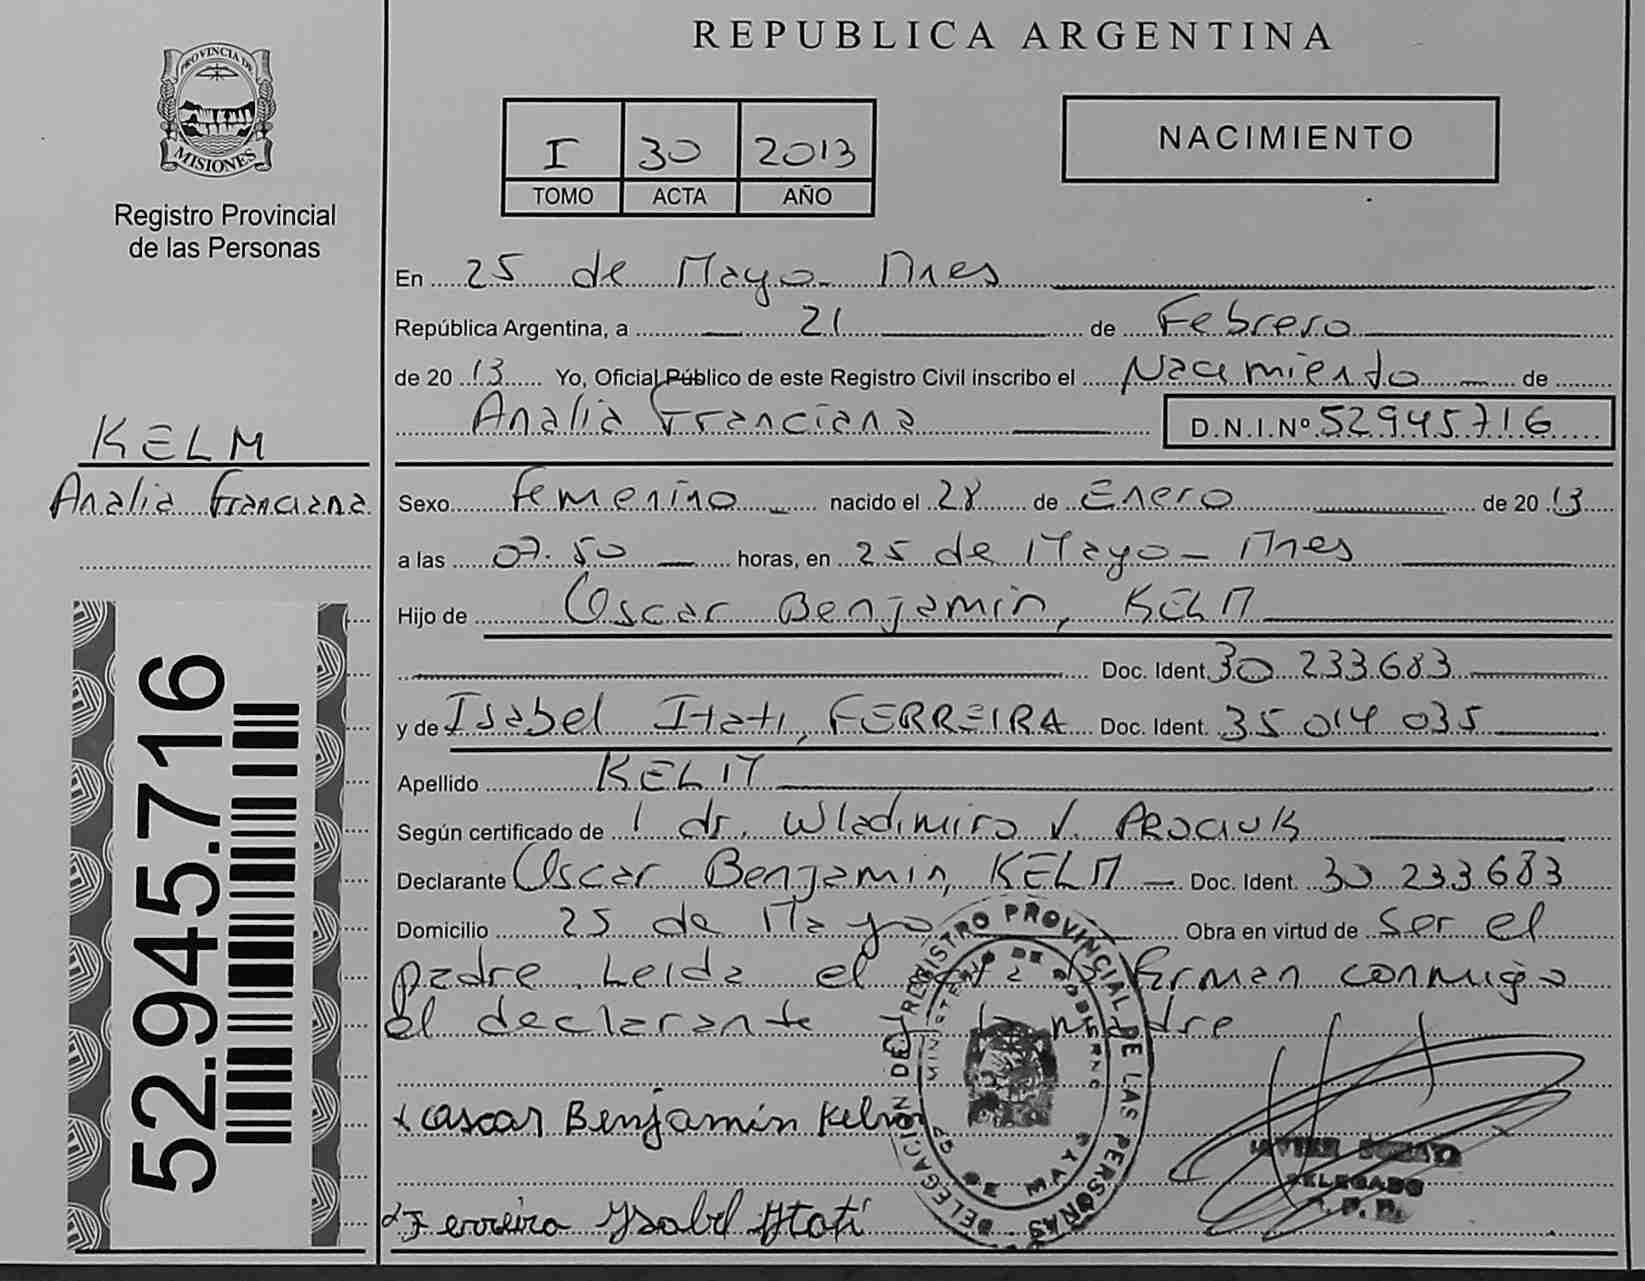 PROVINCIA DE
MISIONES
Registro Provincial
de las Personas
KELM
Analia Franciana
52.945.716
REPUBLICA ARGENTINA
I 30 2013
TOMO ACTA AÑO
NACIMIENTO
En 25 de Mayo - Mnes
República Argentina, a 21 de Febrero
de 20 13 Yo, Oficial Público de este Registro Civil inscribo el Nacimiento de
Analia Franciana D.N.I.Nº 52945716
Sexo femenino nacido el 28 de Enero de 20 13
a las 07.50 horas, en 25 de Mayo - Mnes
Hijo de Oscar Benjamin, KELM
Doc. Ident. 30 233683
y de Isabel Itati, FERREIRA Doc. Ident. 35 014 035
Apellido KELM
Según certificado de 1 dr. Wladimiro V.
Declarante Oscar Benjamin, KELM - Doc. Ident. 30 233683
Domicilio 25 de Mayo Obra en virtud de Ser el
padre. Leida el firman conmigo
el declarante madre
x Oscar Benjamín Kelm
x Ferreira Ysabel Itatí
DELEGACIÓN DEL REGISTRO PROVINCIAL DE LAS PERSONAS
MINISTERIO DE GOBIERNO
25 DE MAYO
DELEGADO